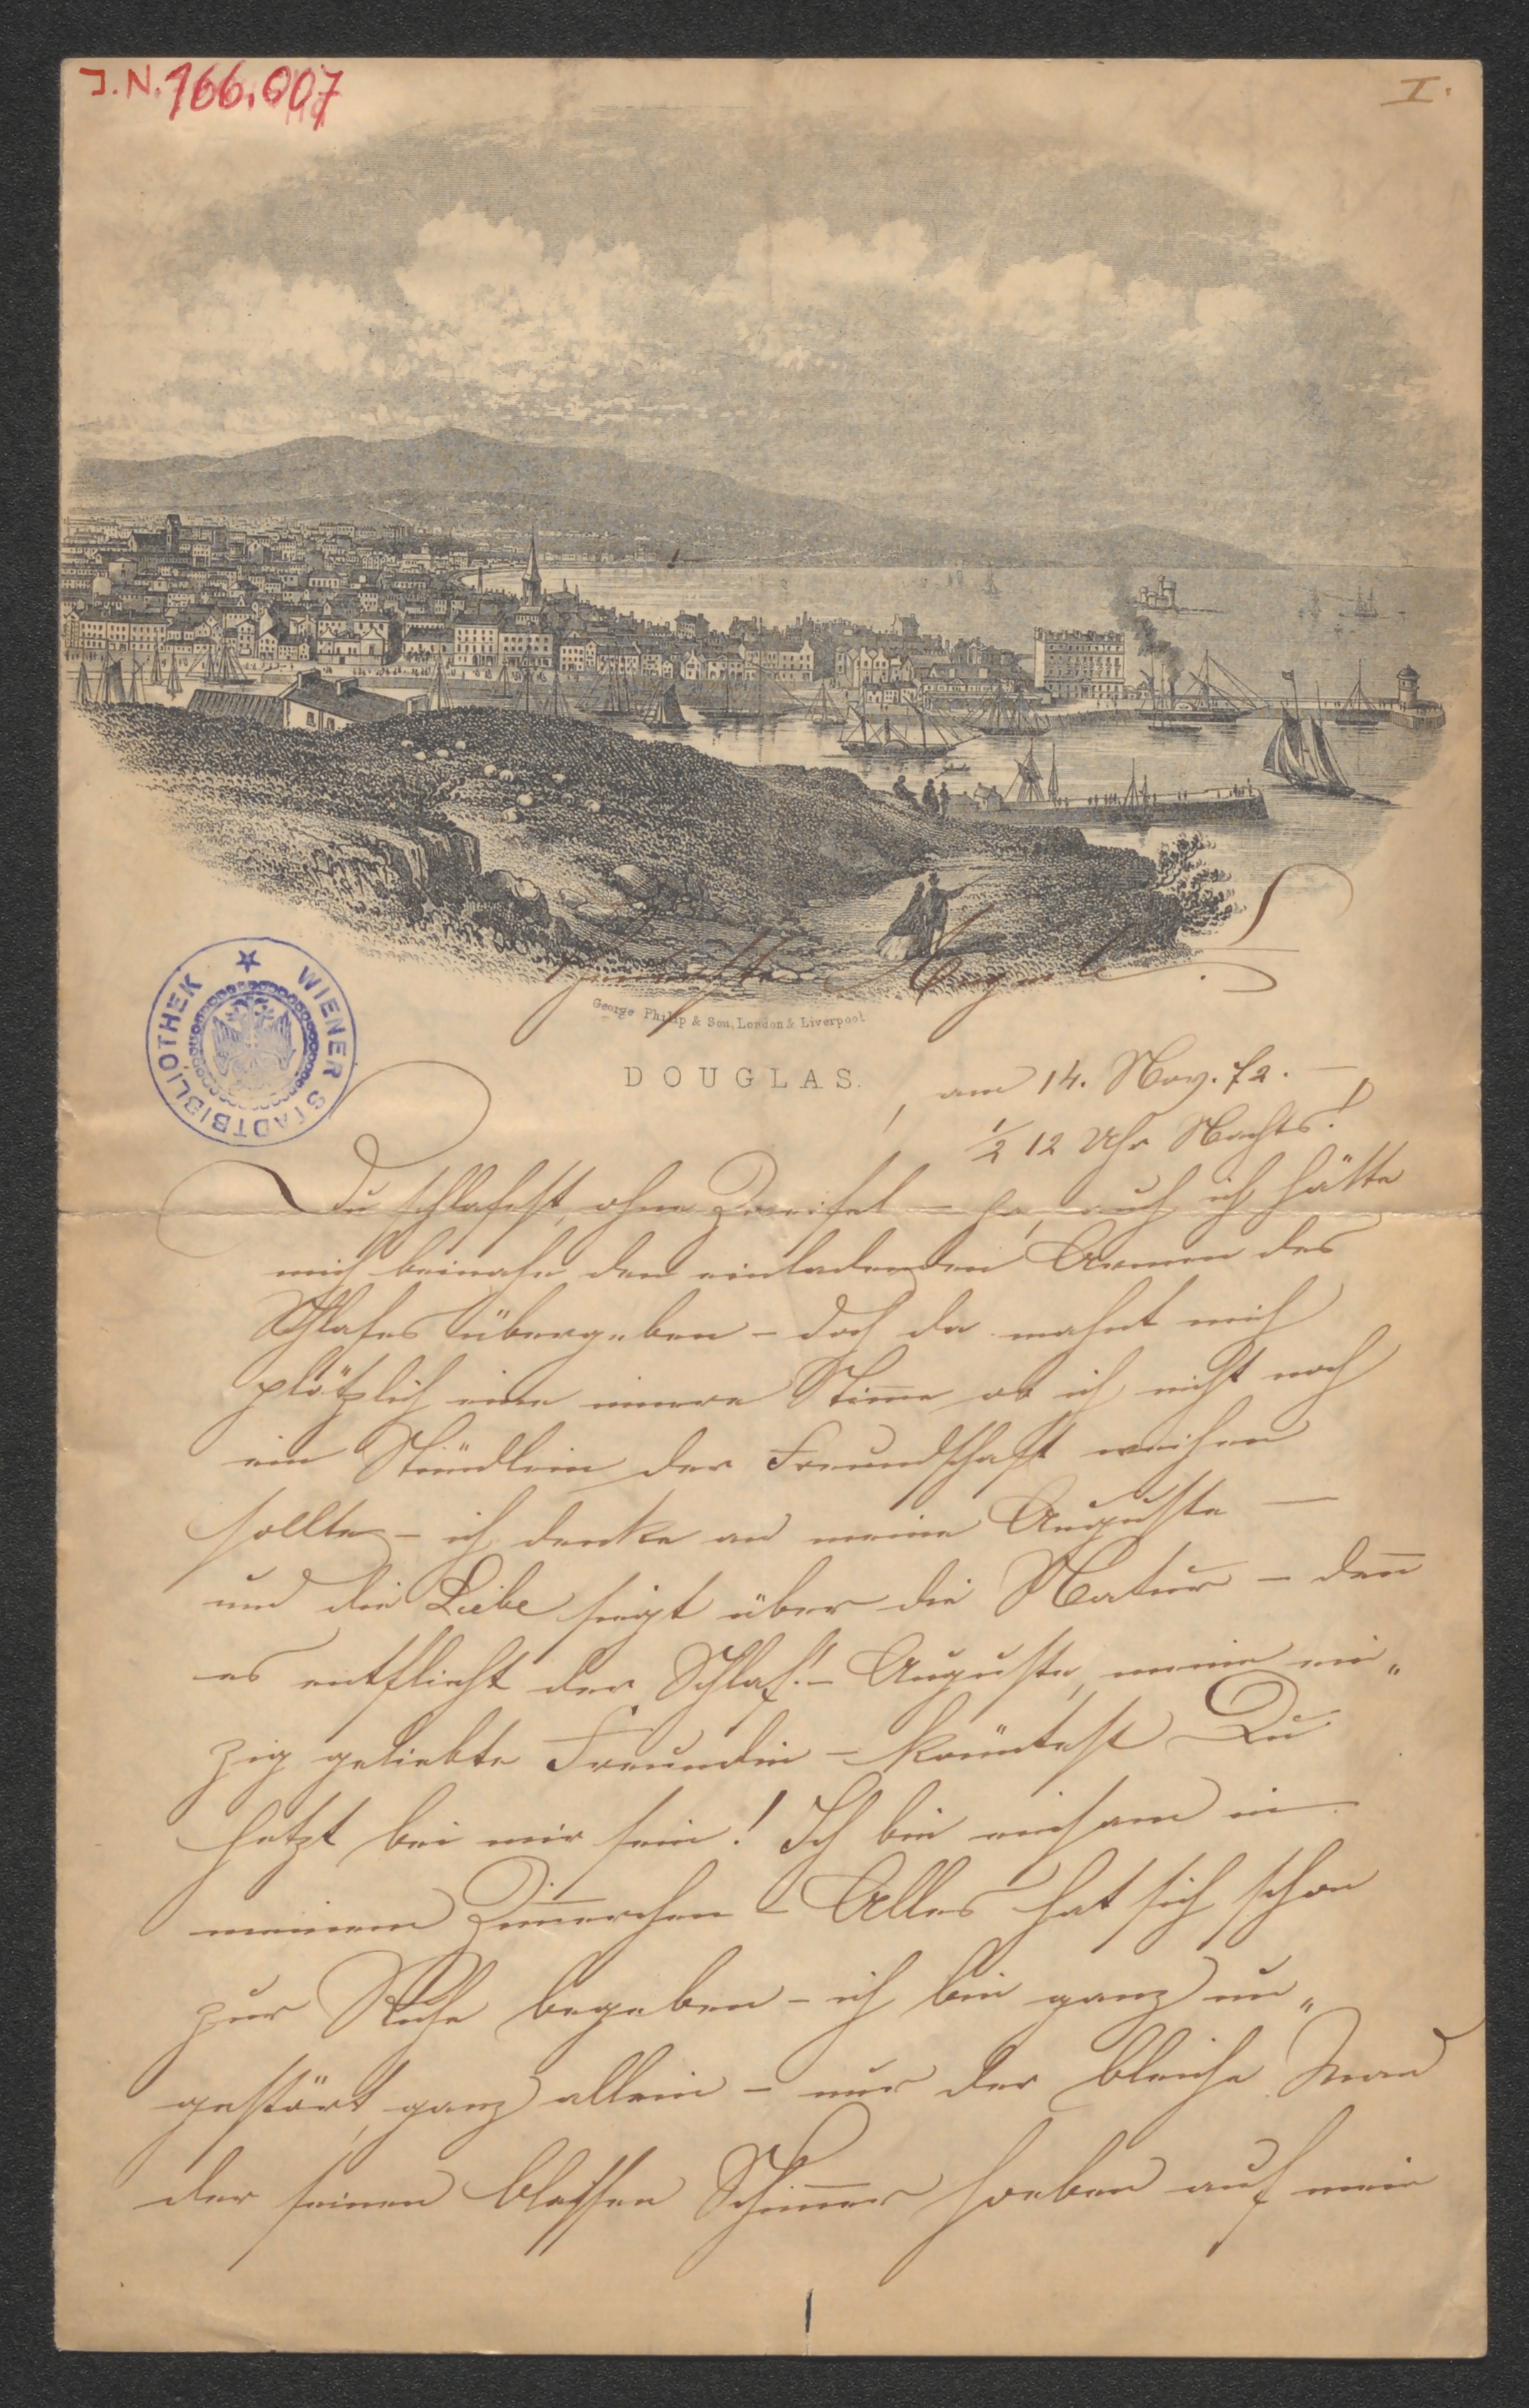 J.N. 166.007
I.
George Philip & Son, London & Liverpool
DOUGLAS.
WIENER STADTBIBLIOTHEK
am 14. Nov. 72. —
½ 12 Uhr Nachts!
Du schlafest, ohne Zweifel – ja, auch ich hätte
mich beinahe den einladenden Armen des
Schlafes übergeben – doch da mahnt mich
plötzlich eine innere Stim̅e ob ich nicht noch
ein Stündlein der Freundschaft weihen
sollte – ich denke an meine Auguste —
und die Liebe siegt über die Natur – den̅
es entflieht der Schlaf! – Auguste, meine ein„
zig geliebte Freundin – kön̅test Du
jetzt bei mir sein! Ich bin einsam in
meinem Zim̅erchen – Alles hat sich schon
zur Ruhe begeben – ich bin ganz un„
gestört, ganz allein – nur der bleiche Mond
der seinen blassen Schim̅er soeben auf mein